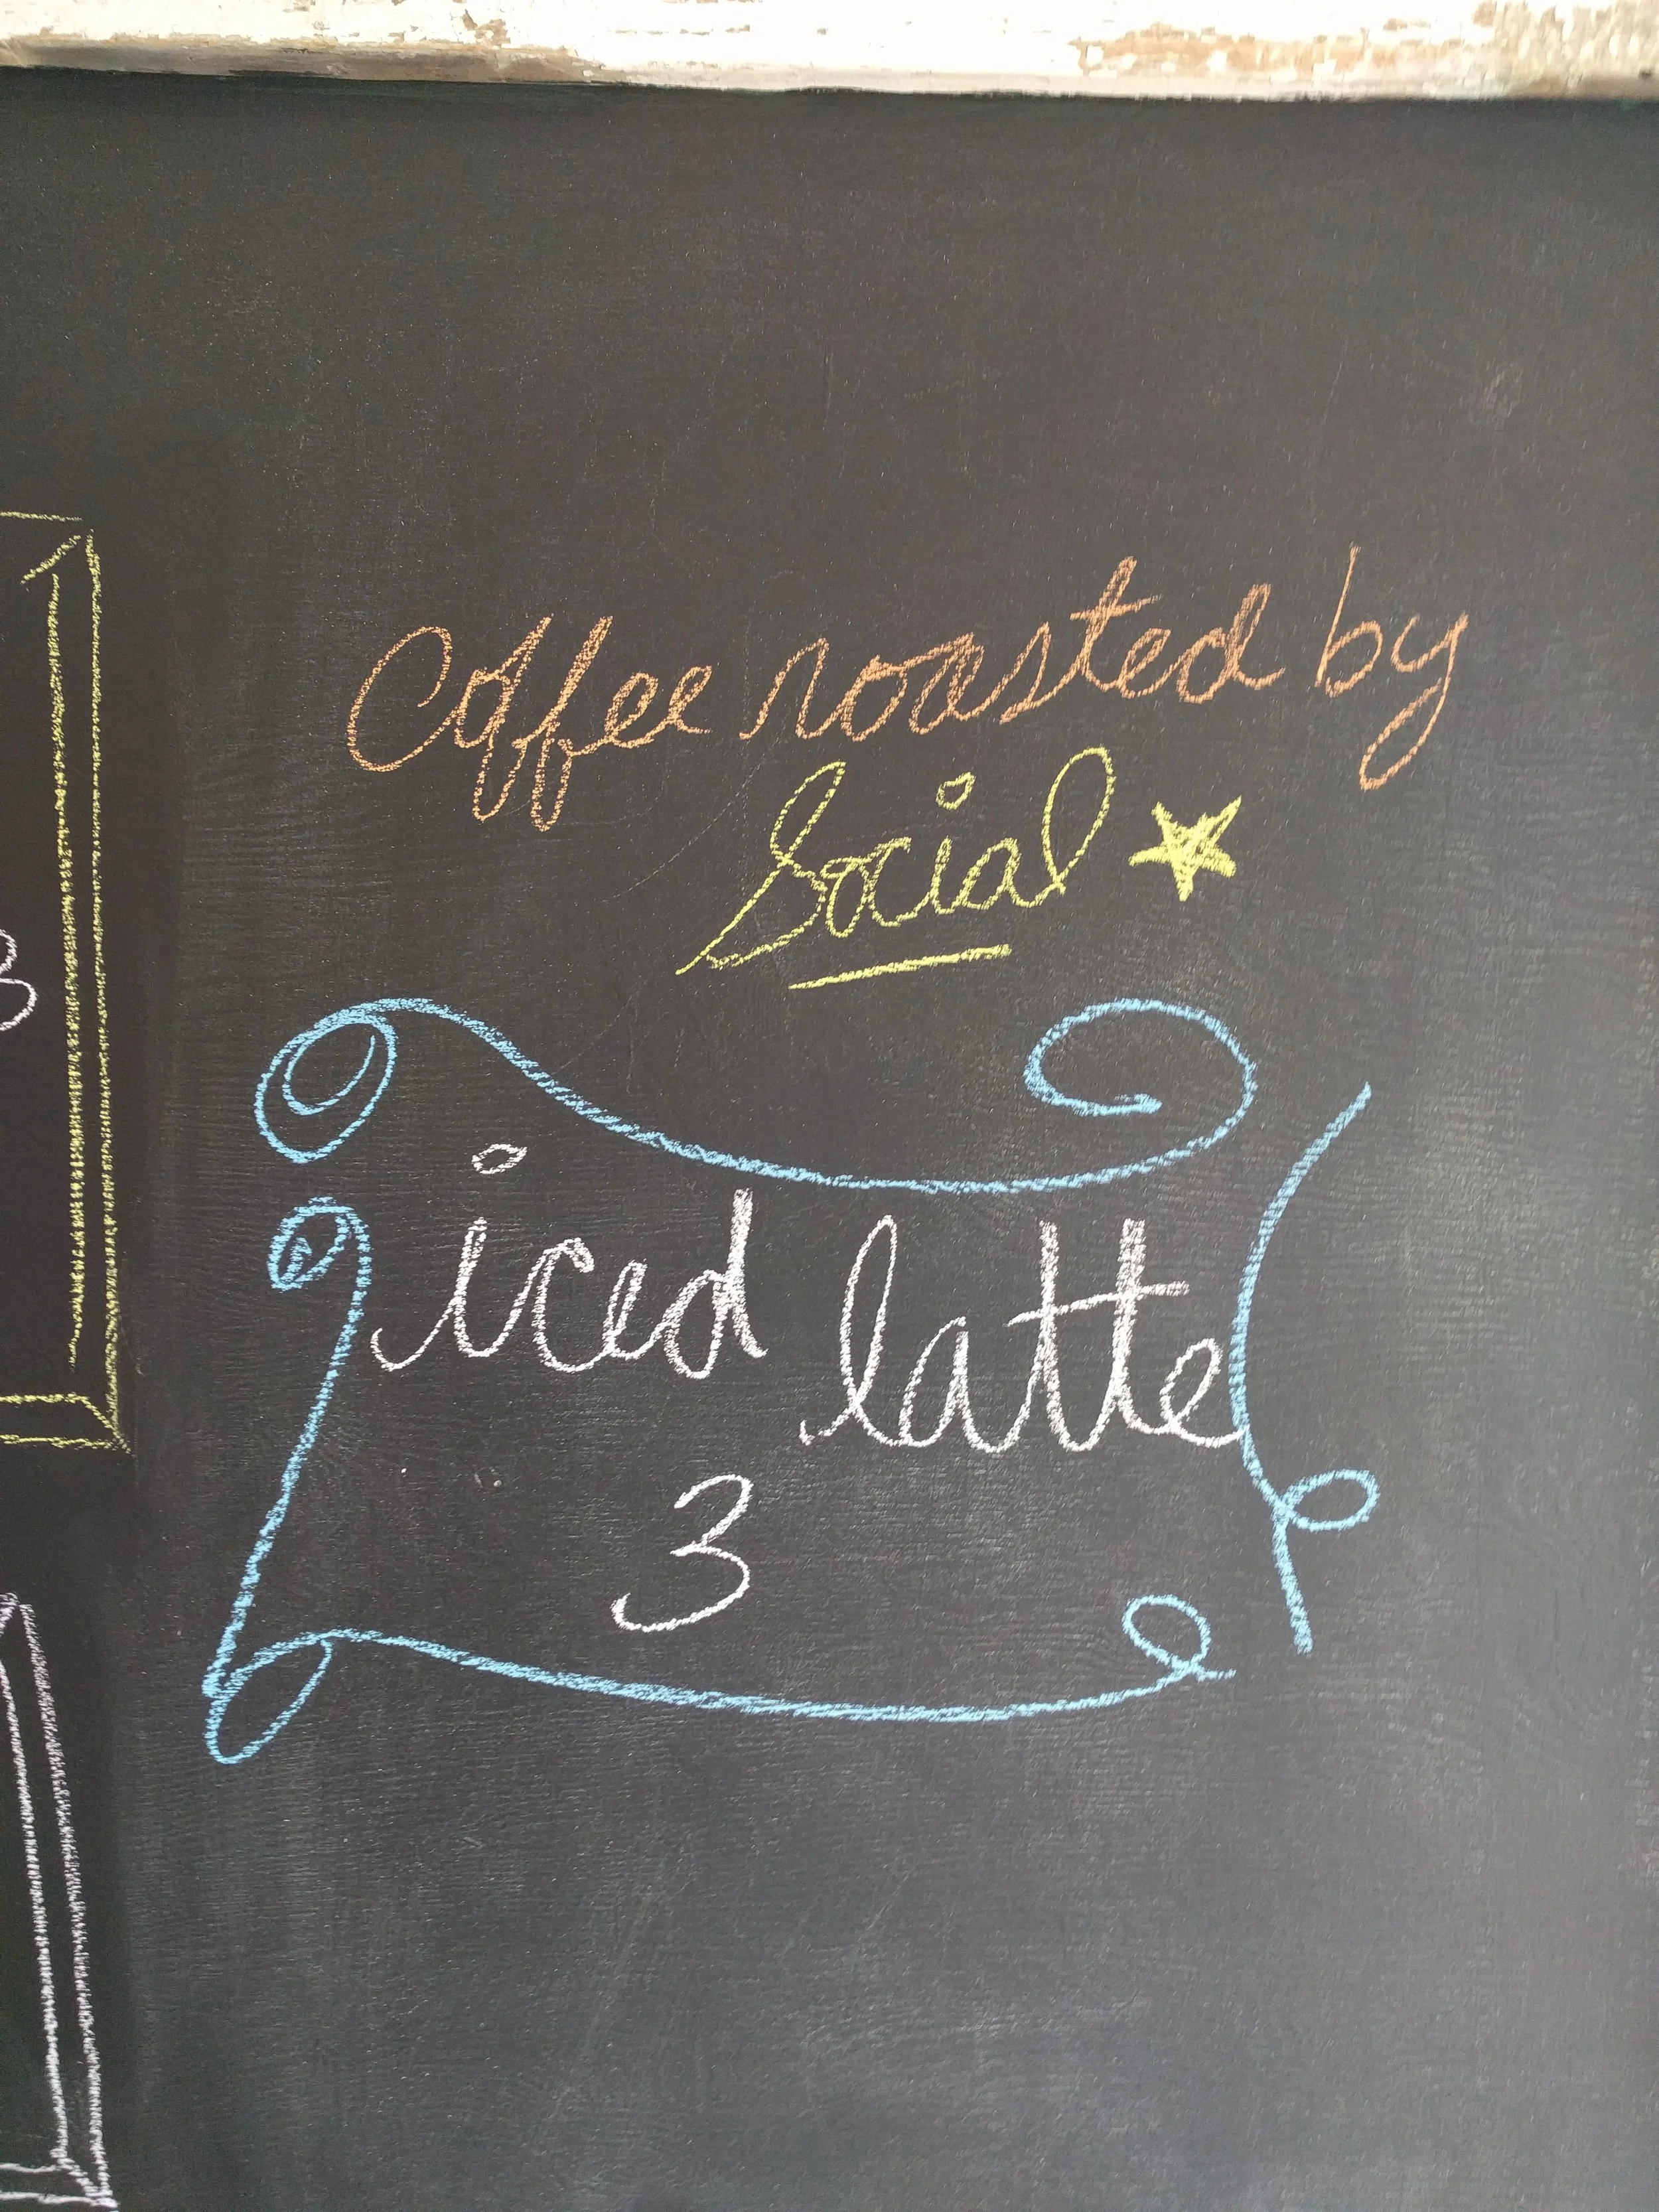 Coffee roasted by
Social
iced latte
3